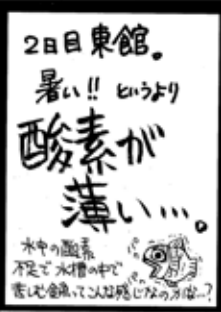 2日目東館。
暑い!! というより
酸素が
薄い…。
水中の酸素
不足で水槽の中で
苦しむ金魚ってこんな感じなのかな…?